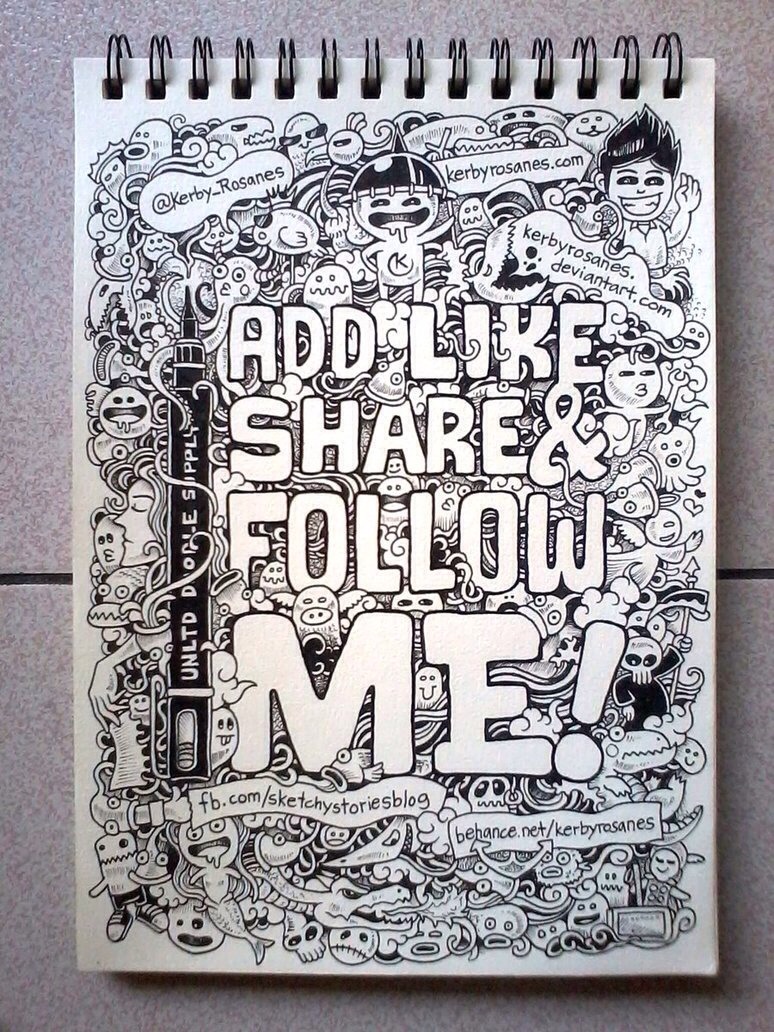 @Kerby_Rosanes
kerbyrosanes.com
K
kerbyrosanes.
deviantart.com
ADD LIKE
SHARE &
FOLLOW
ME!
UNLTD DOODLE SUPPLY
fb.com/sketchystoriesblog
behance.net/kerbyrosanes